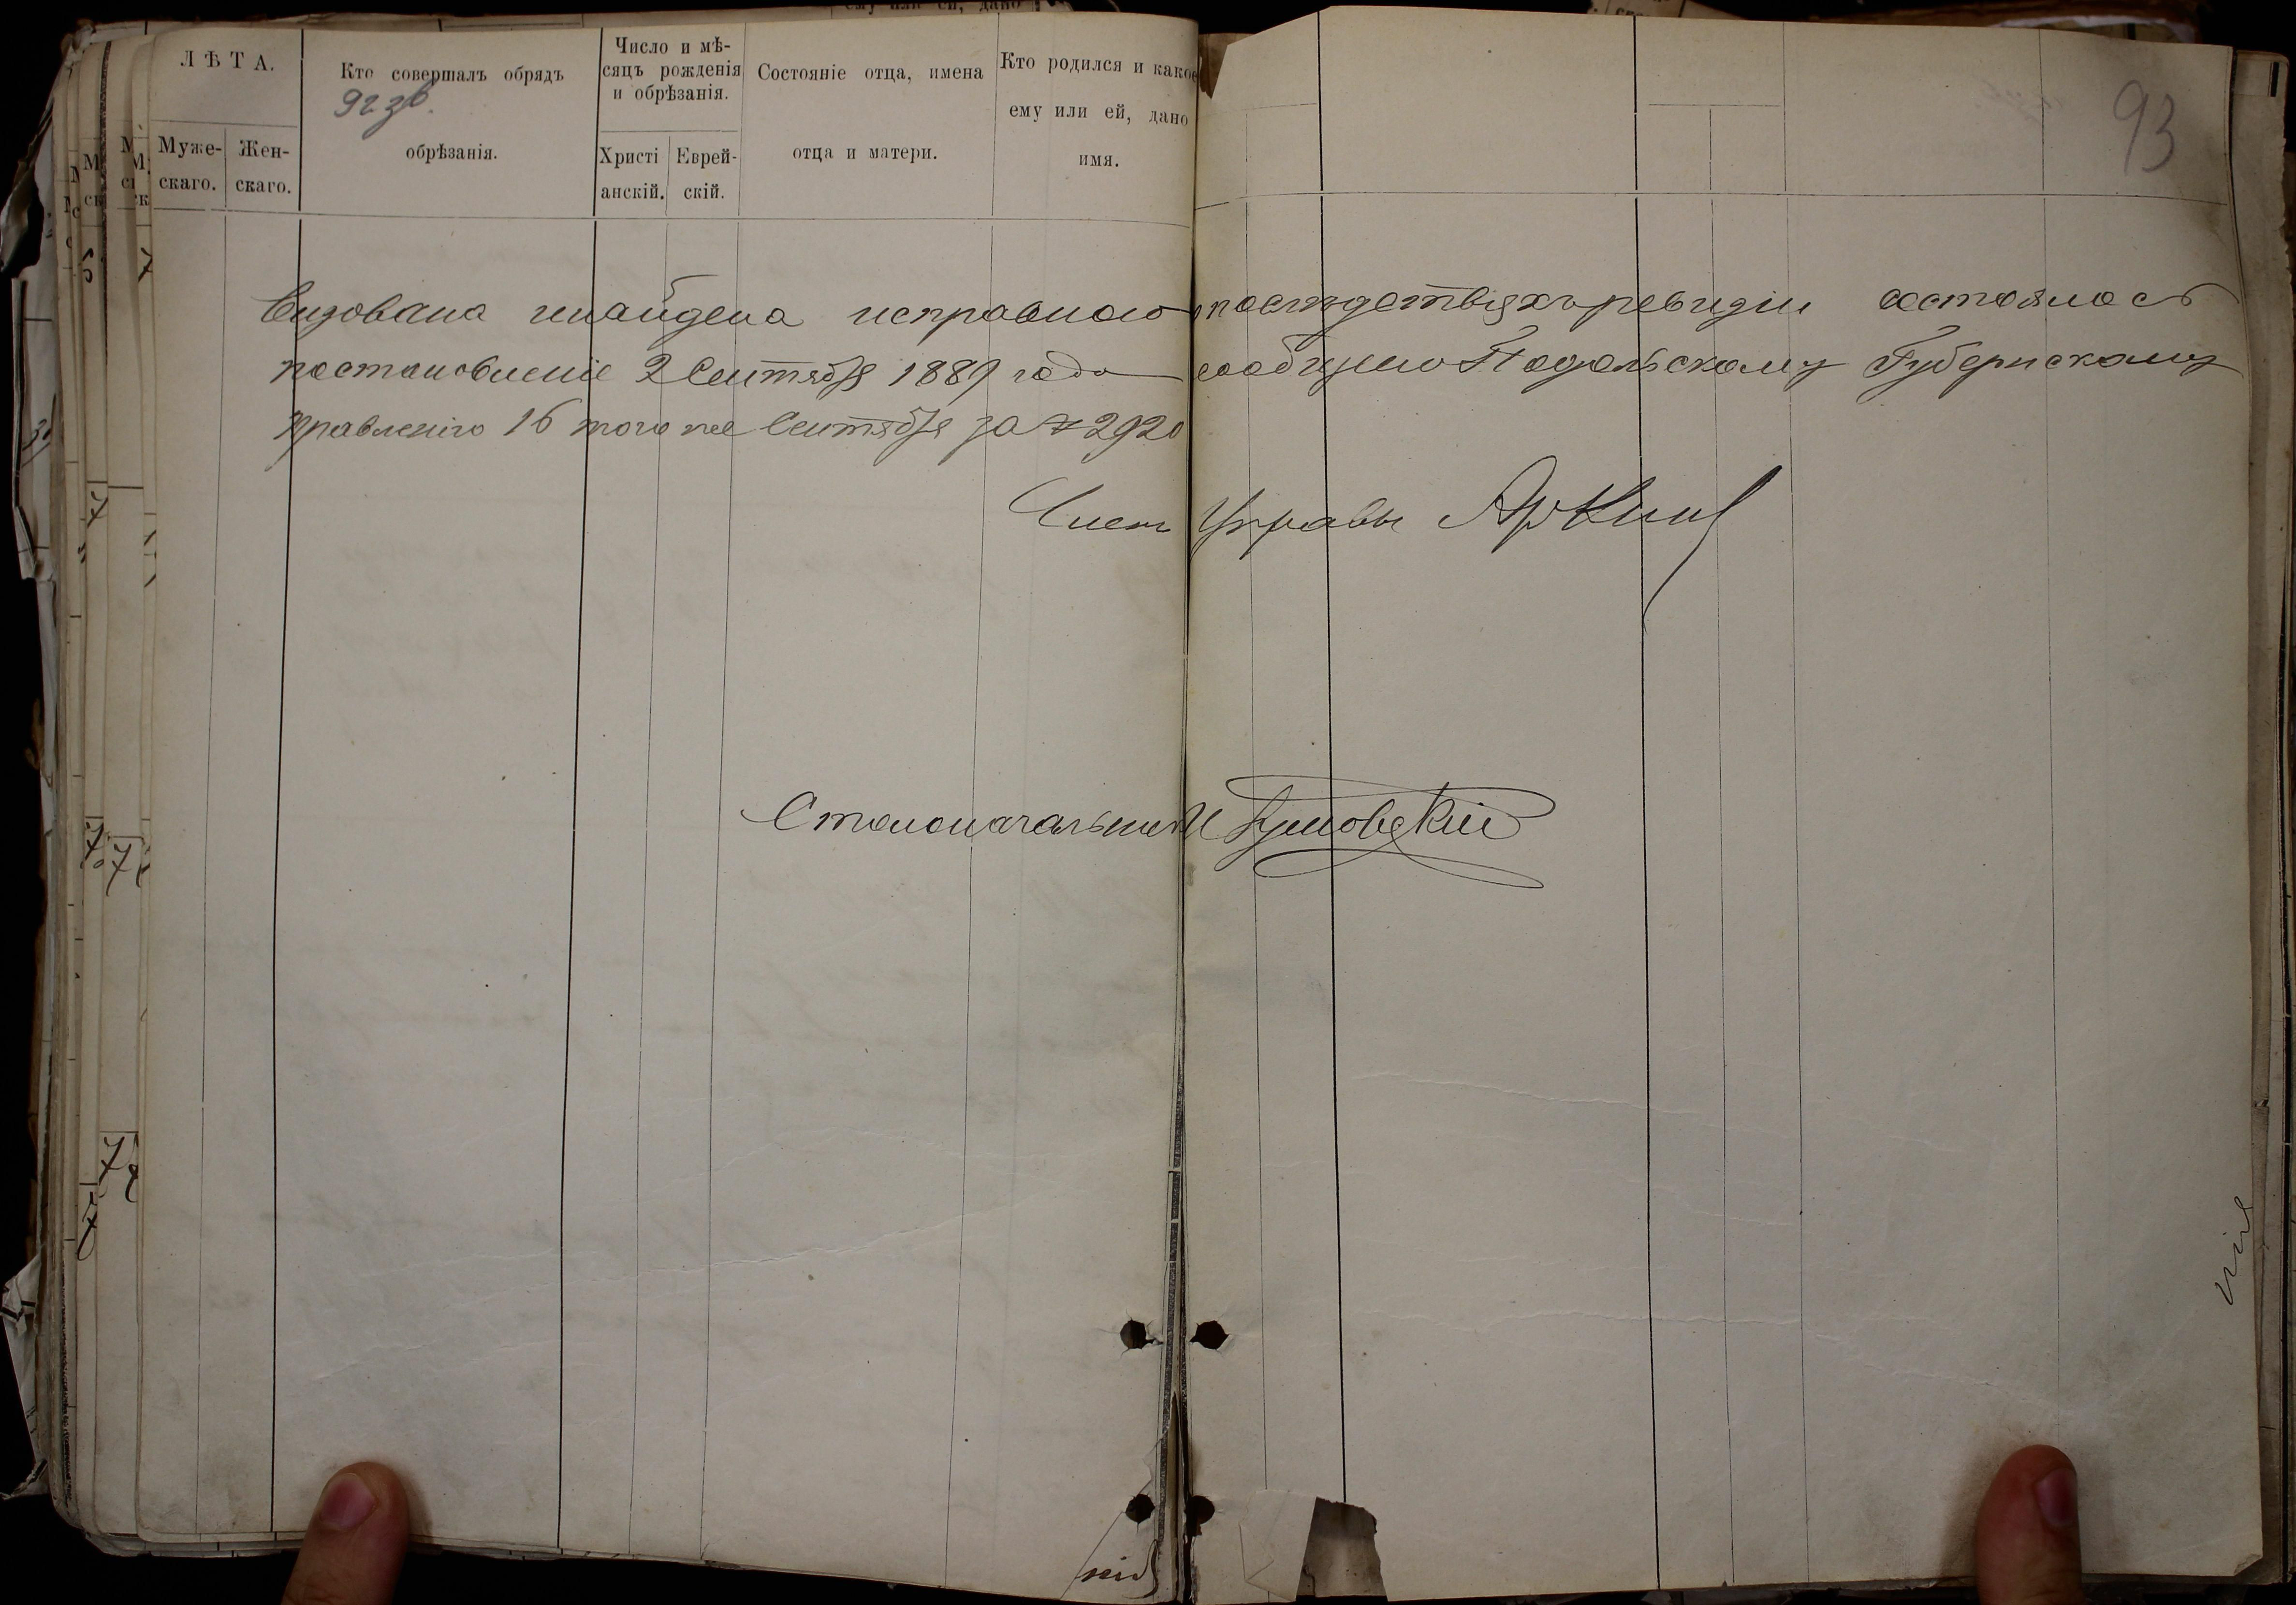 ЛѢТА.
Муже-
скаго.
Жен-
скаго.
Кто совершалъ обрядъ
обрѣзанія.
92 зв.
Число и мѣ-
сяцъ рожденія
и обрѣзанія.
Христі
анскій.
Еврей-
скій.
Состояніе отца, имена
отца и матери.
Кто родился и какое
ему или ей, дано
имя.
93
Визована и найдена исправною о послѣдствіяхъ ревизіи состоялось
постановленіе 2 Сентября 1889 года сообщено Подольскому Губернскому
Правленію 16 того же Сентября за № 2920
Членъ Управы
Столоначальникъ